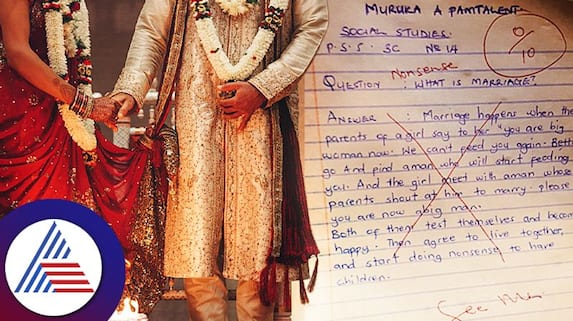 MURUKA A PAMTALENT
SOCIAL STUDIES.
P.S.S. 3C № 14
0/10
Nonsense
QUESTION : WHAT IS MARRIAGE?
ANSWER : Marriage happens when the
parents of a girl say to her "you are big
woman now. We can't feed you again. Bette
go and find aman who will start feeding
you. And the girl meet with aman whose
parents shout at him to marry. please
you are now abig man.
Both of them test themselves and becom
happy. Then agree to live together,
and start doing nonsense to have
children.
See Me